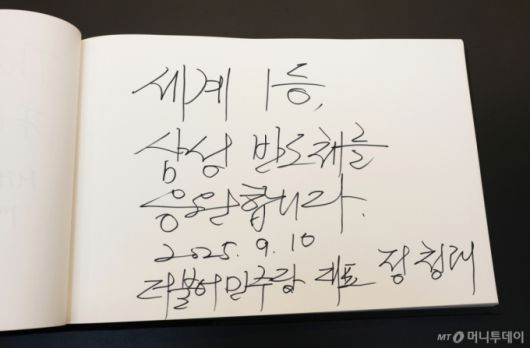 세계 1등,
삼성 반도체를
응원합니다.
2025. 9. 10
더불어민주당 대표 정청래
MT 머니투데이